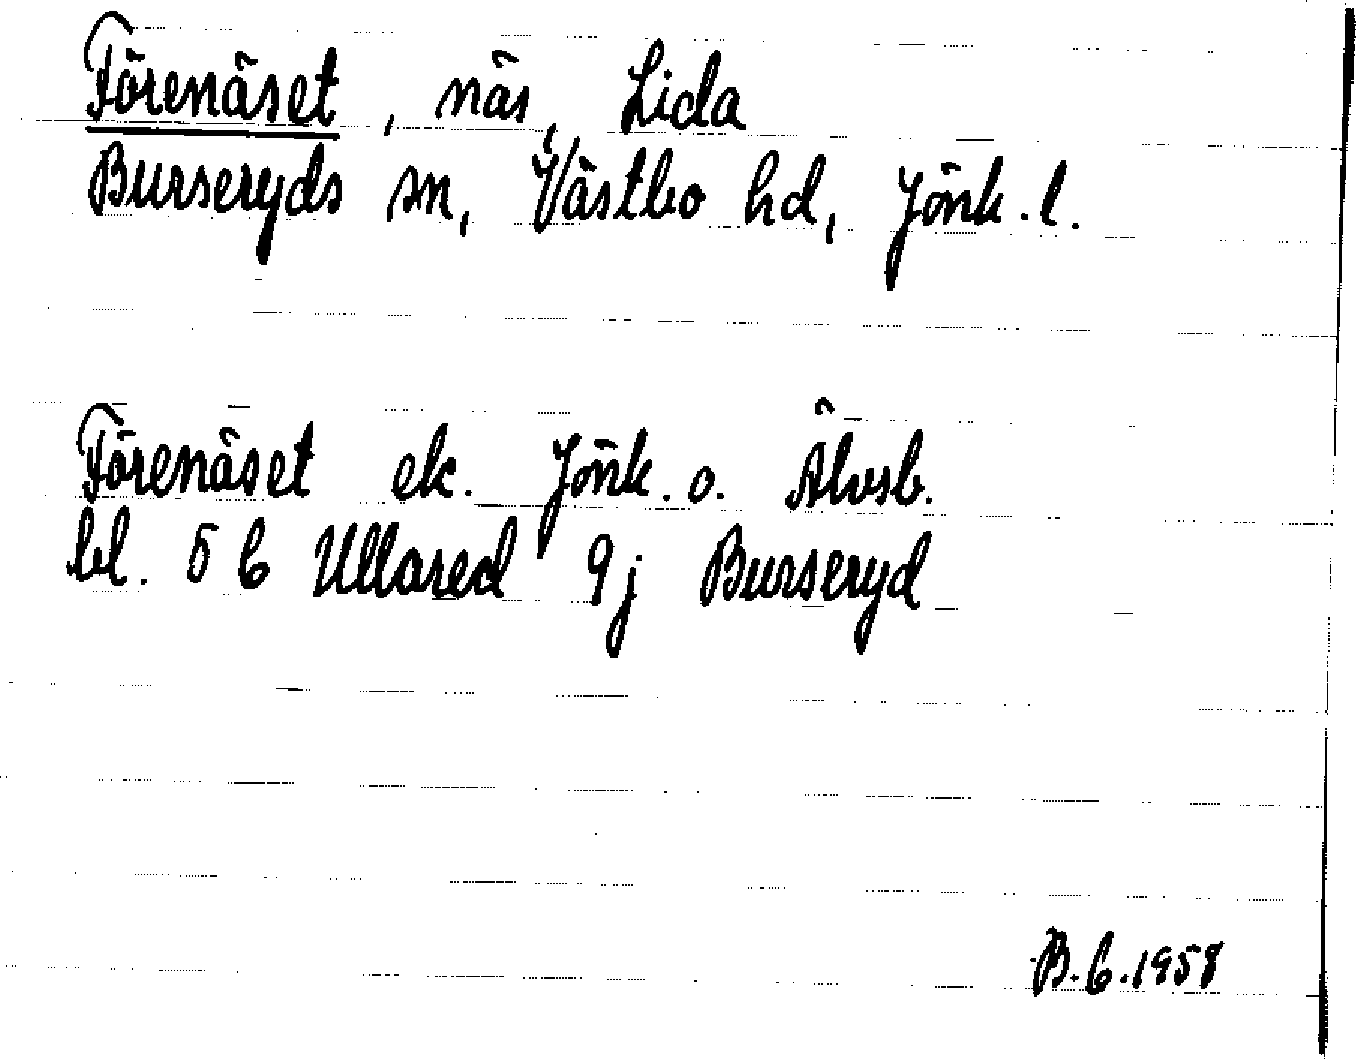 Förenäset, näs, Lida
Burseryds sn, Västbo hd, Jönk. l.
Förenäset ek. Jönk. o. Älvsb.
bl. 5 C Ullared 9j Burseryd
B.G.1958